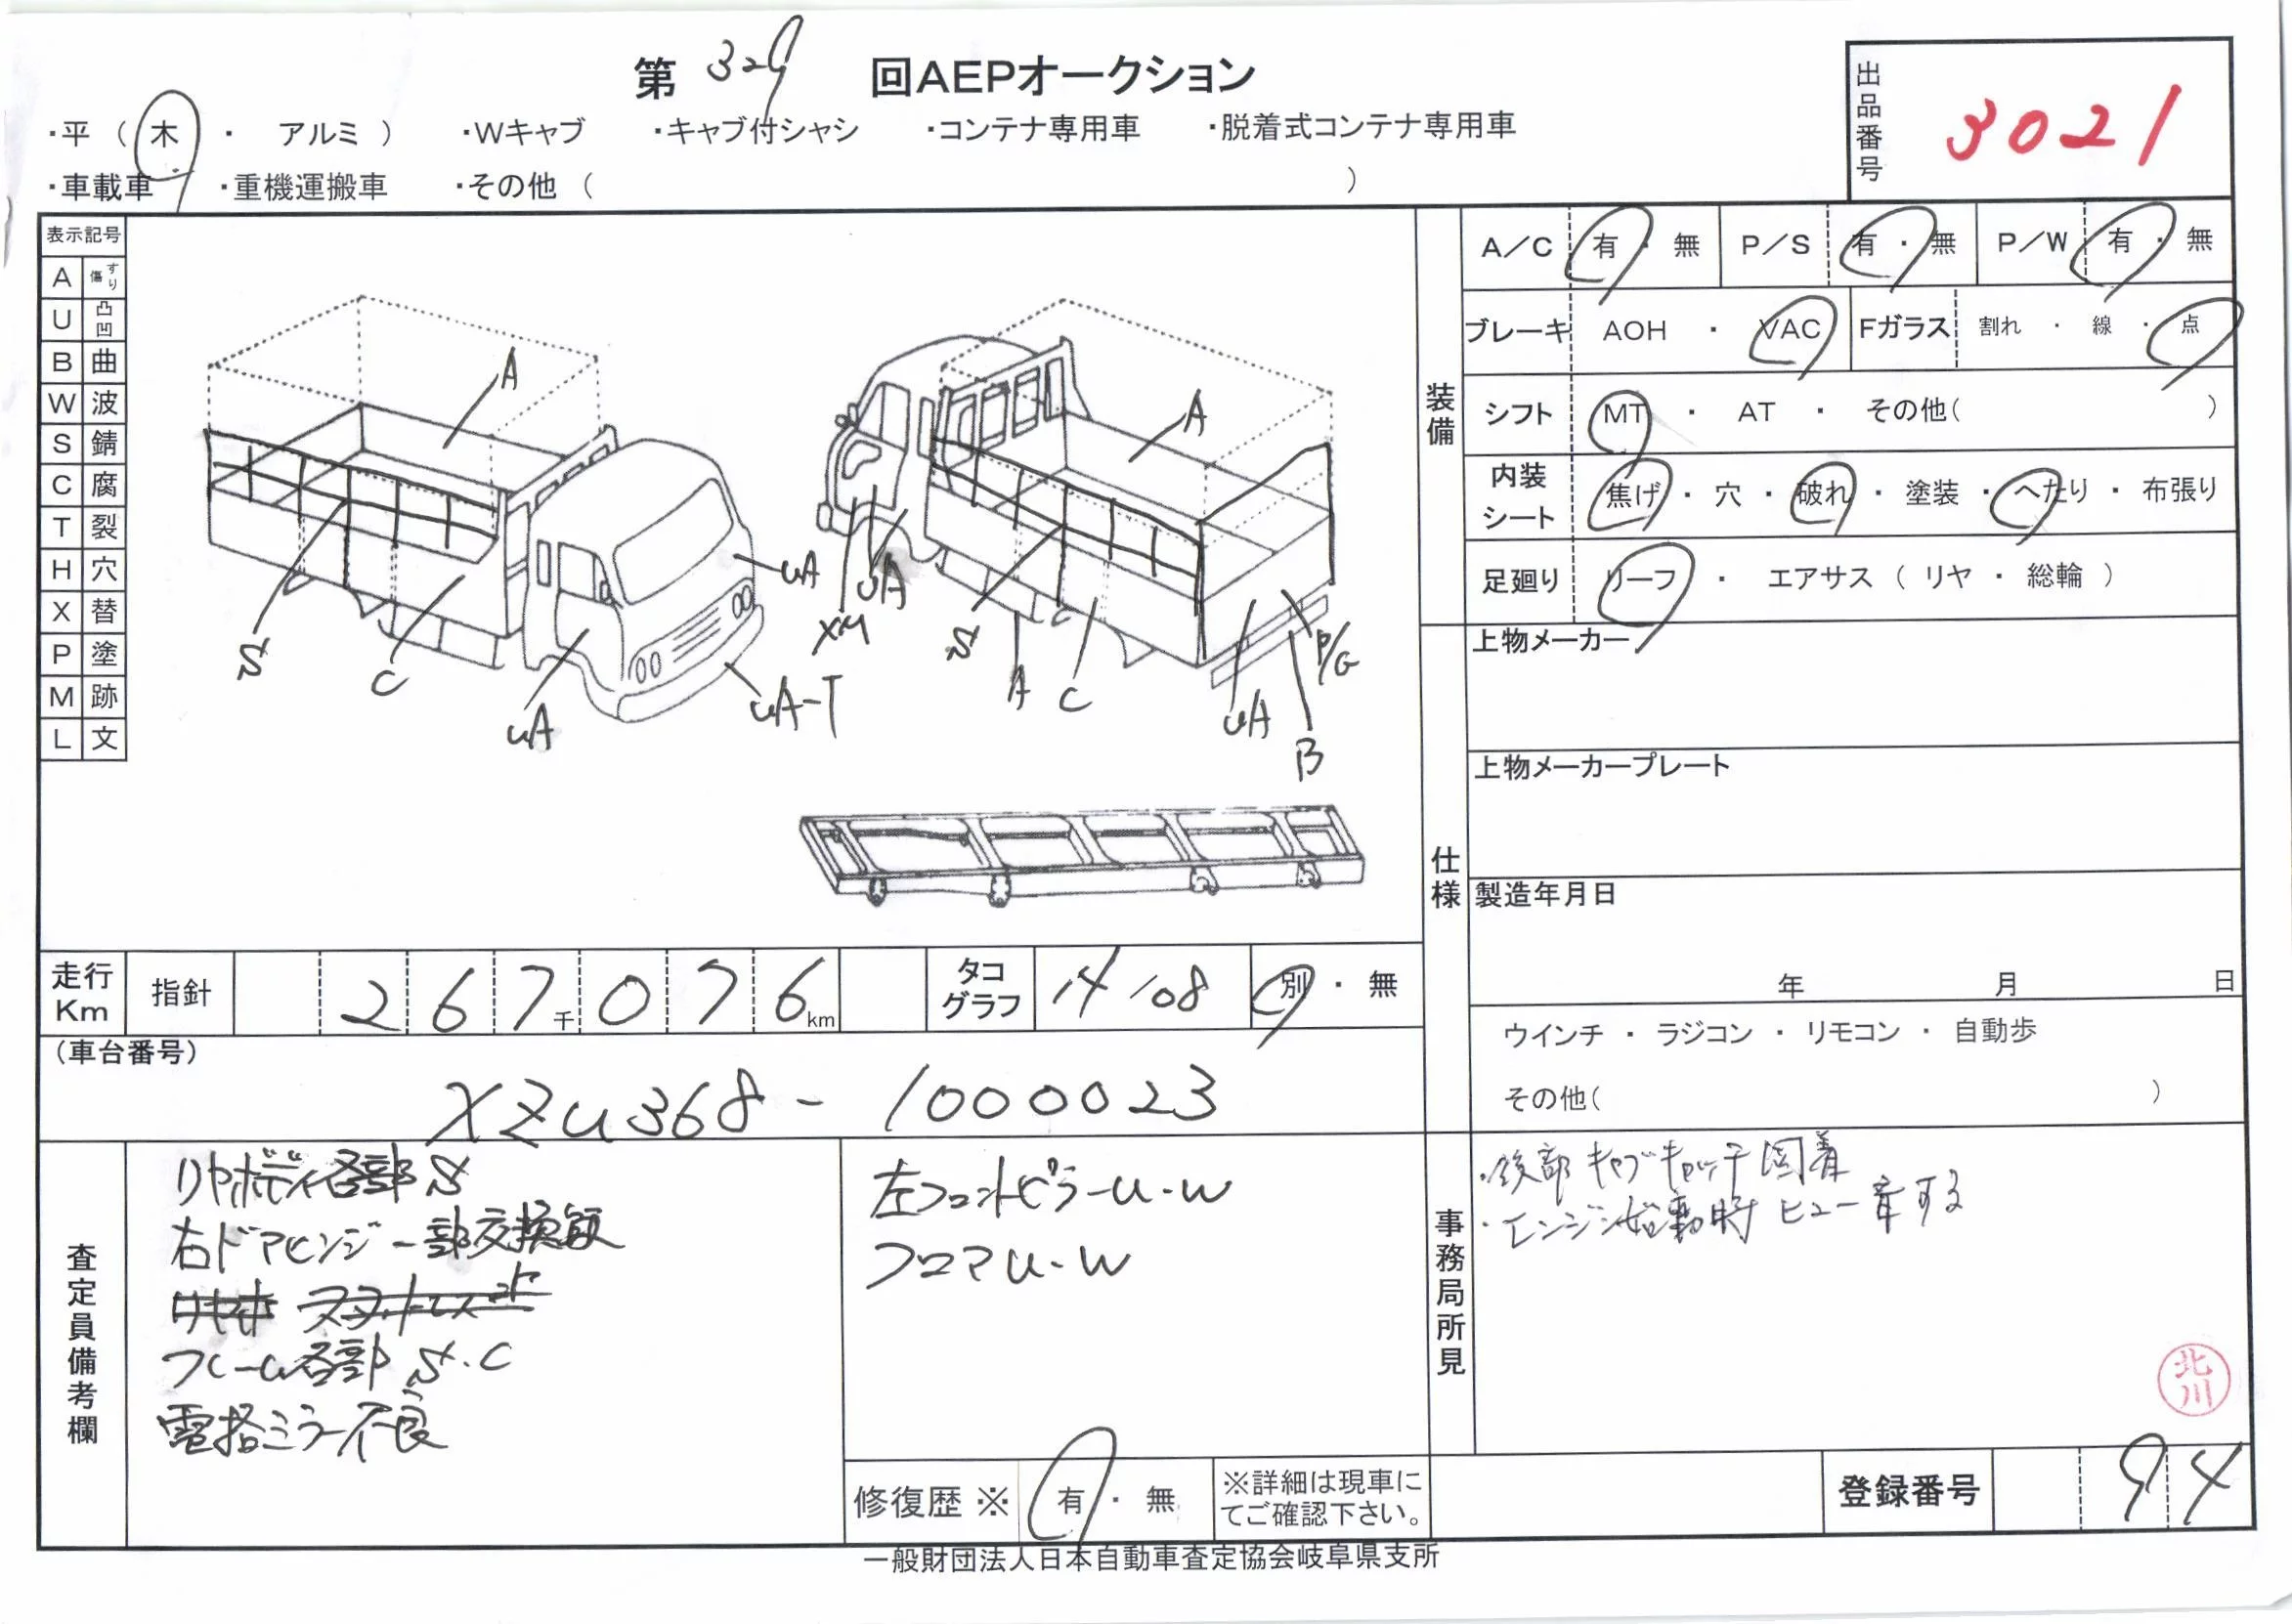 第 329 回AEPオークション
・平 ( 木 ・ アルミ ) ・Wキャブ ・キャブ付シャシ ・コンテナ専用車 ・脱着式コンテナ専用車
・車載車 ・重機運搬車 ・その他 ( )
出品番号 3021
表示記号
A すり傷
U 凸凹
B 曲
W 波
S 錆
C 腐
T 裂
H 穴
X 替
P 塗
M 跡
L 文
A
S
C
uA
uA
uA-T
A
XM
uA
S
A
C
uA
P/G
B
装備
A/C 有 ・ 無 P/S 有 ・ 無 P/W 有 ・ 無
ブレーキ AOH ・ VAC Fガラス 割れ ・ 線 ・ 点
シフト MT ・ AT ・ その他( )
内装シート 焦げ ・ 穴 ・ 破れ ・ 塗装 ・ へたり ・ 布張り
足廻り リーフ ・ エアサス ( リヤ ・ 総輪 )
仕様
上物メーカー
上物メーカープレート
製造年月日
年 月 日
ウインチ ・ ラジコン ・ リモコン ・ 自動歩
その他( )
走行Km 指針 267千076km タコグラフ 14/08 別 ・ 無
(車台番号)
XZU368-1000023
査定員備考欄
リヤボディ各部S
右ドアヒンジ一部交換
フレーム各部 S.C
電格ミラー不良
左フロントピラーU.W
フロアU.W
修復歴 ※ 有 ・ 無 ※詳細は現車にてご確認下さい。
事務局所見
・後部キャブキャッチ固着
・エンジン始動時ヒュー音する
北川
登録番号 94
一般財団法人日本自動車査定協会岐阜県支所